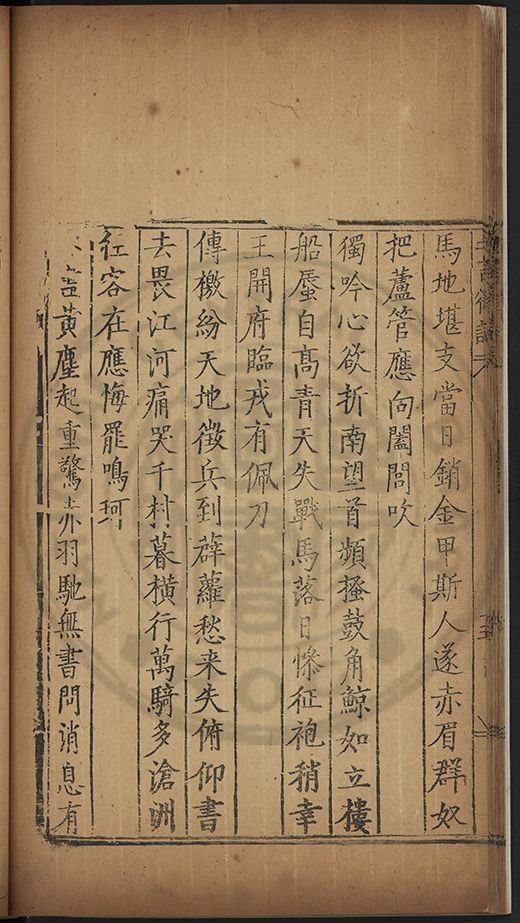 馬地堪支當日銷金甲斯人遂赤眉群奴
把蘆管應向闔閭吹
獨吟心欲折南望首頻搔鼓角鯨如立樓
船蜃自高青天失戰馬落日慘征袍稍幸
王開府臨戎有佩刀
傳檄紛天地徵兵到薜蘿愁来失俯仰書
去畏江河痛哭千村暮橫行萬騎多滄洲
紅容在應悔罷鳴珂
黃塵起重驚赤羽馳無書問消息有